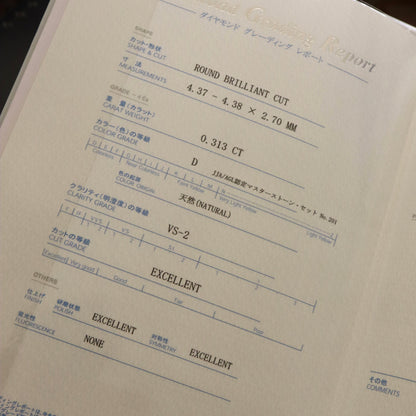 Grading Report
ダイヤモンド グレーディング レポート
SHAPE
カット・形状
SHAPE & CUT
ROUND BRILLIANT CUT
寸法
MEASUREMENTS
4.37 - 4.38 × 2.70 MM
GRADE
重量(カラット)
CARAT WEIGHT
0.313 CT
カラー(色)の等級
COLOR GRADE
D
JJA/AGL認定マスターストーン・セット No.201
D E F G H I J K L M N
Colorless Near Colorless Faint Yellow Very Light Yellow Light Yellow
色の起源
COLOR ORIGIN
天然(NATURAL)
クラリティ(明澄度)の等級
CLARITY GRADE
VS-2
カットの等級
CUT GRADE
EXCELLENT
Excellent Very good Good Fair Poor
OTHERS
仕上げ
FINISH
研磨状態
POLISH
EXCELLENT
対称性
SYMMETRY
EXCELLENT
蛍光性
FLUORESCENCE
NONE
その他
COMMENTS